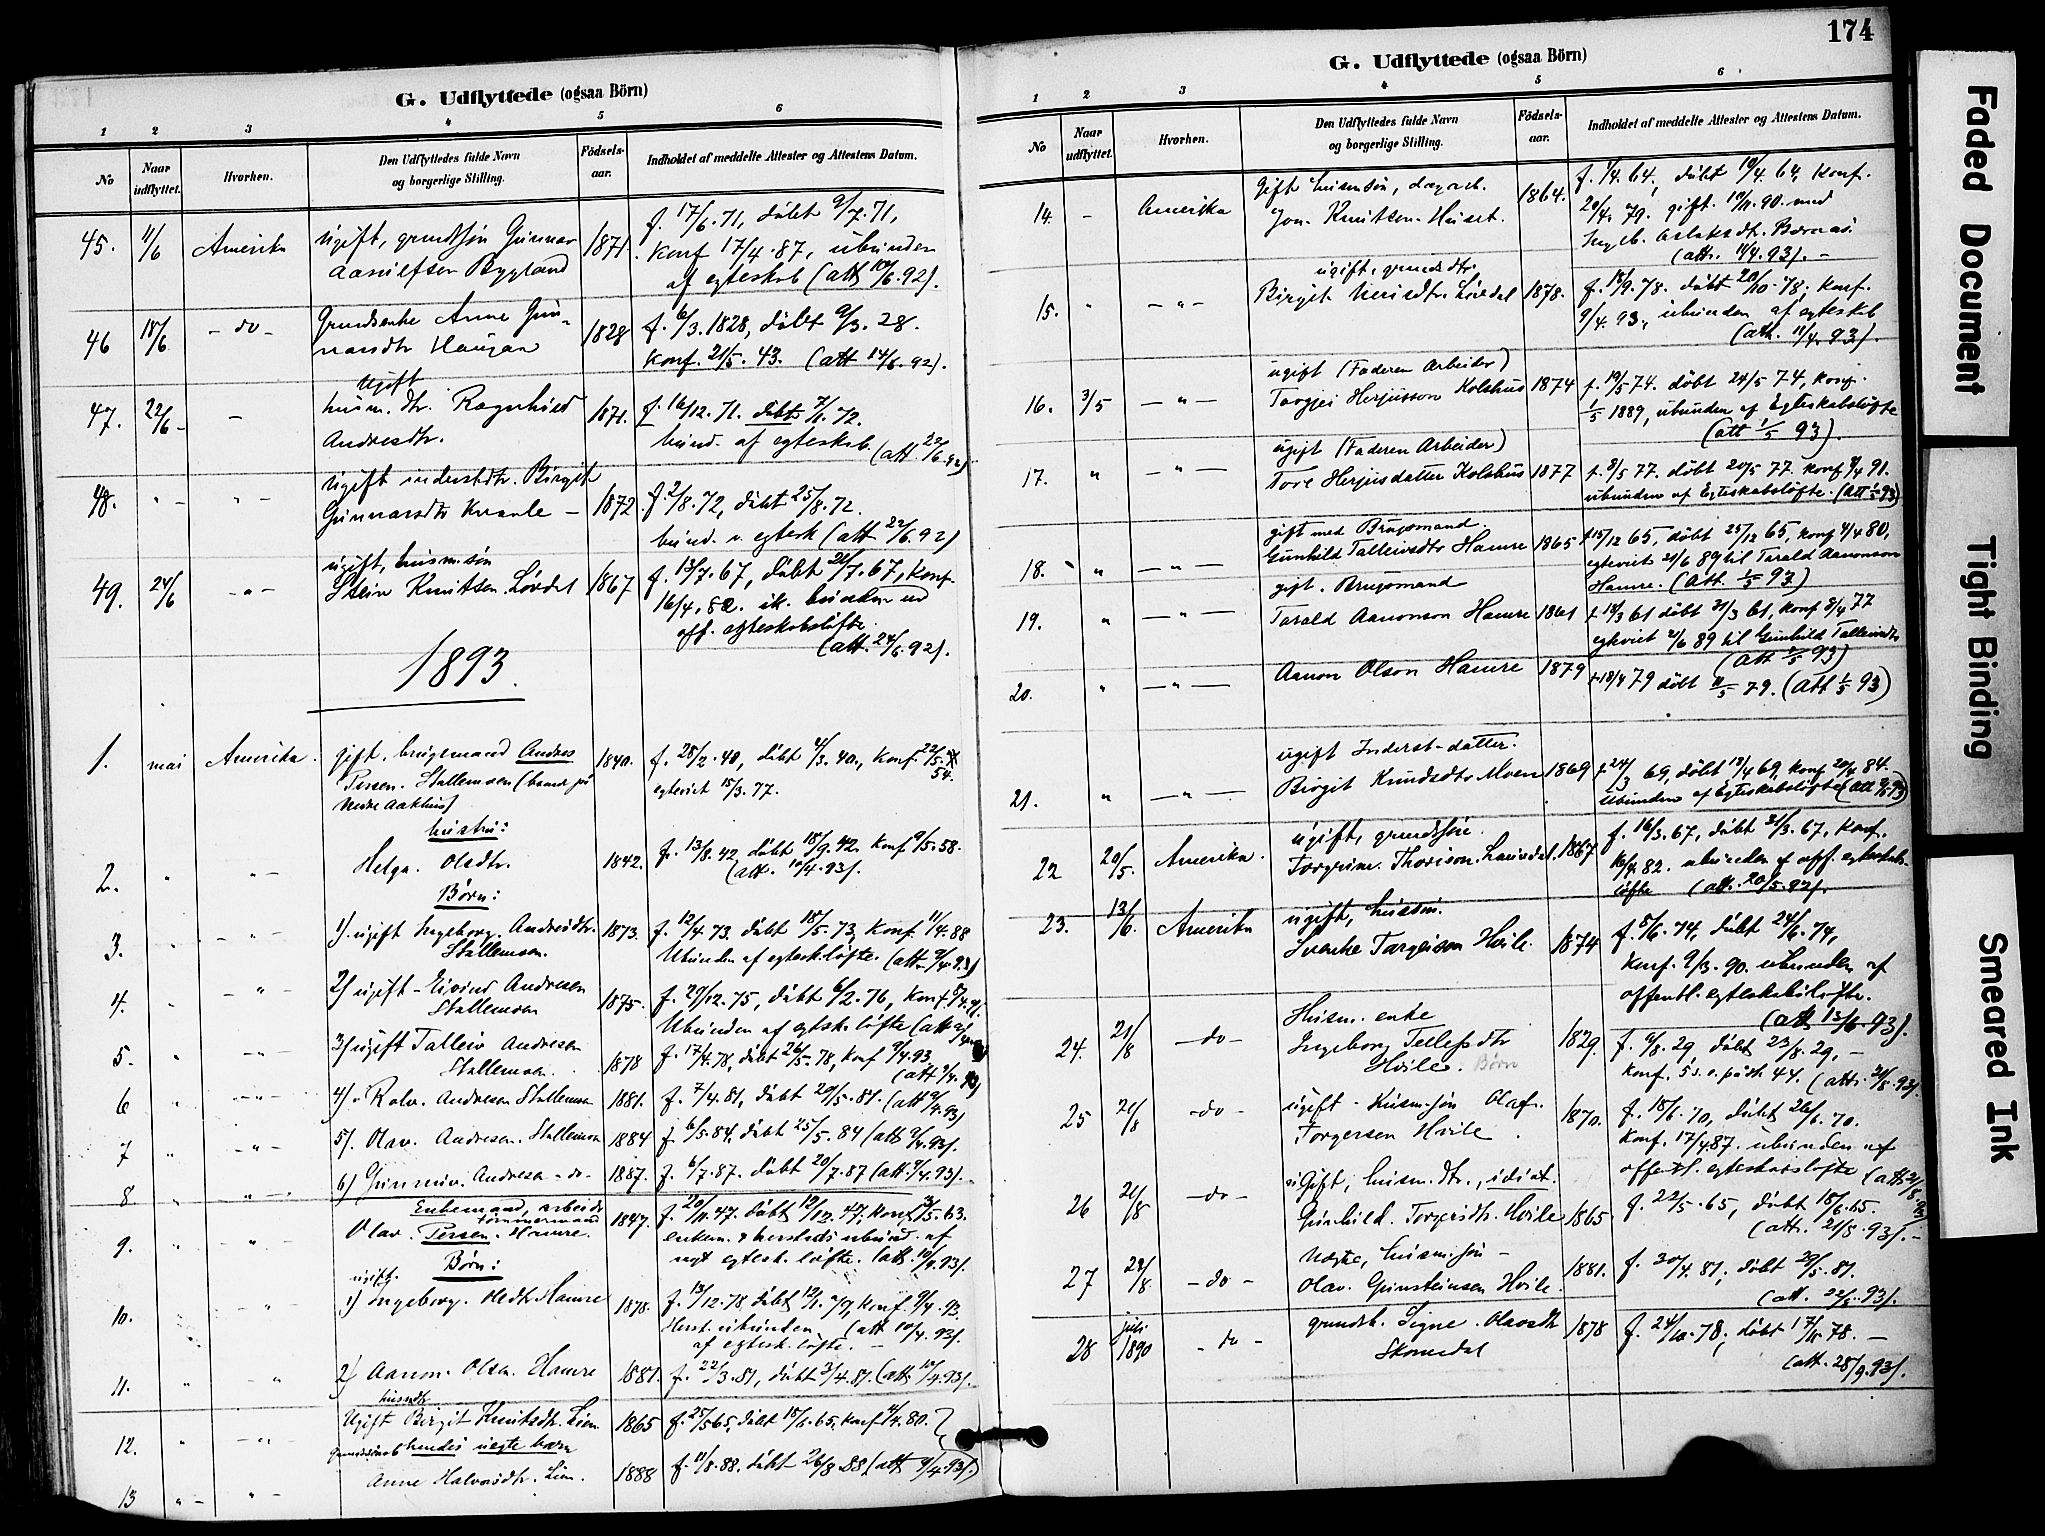 G. Udflyttede (ogsaa Börn)
1 2 3 4 5 6
No
Naar udflyttet.
Hvorhen.
Den Udflyttedes fulde Navn og borgerlige Stilling.
Födsels-aar.
Indholdet af meddelte Attester og Attestens Datum.
45. 11/6 Amerika Ugift, grundsøn Gunnar 1871. f. 17/6.71, døbt 9/7.71,
Aanulfsen Bygland konf 17/4.87, ubunden
af egteskab (att 10/6.92).
46 18/6 -do- Grundenke Anne Gun- 1828 f. 6/3.1828, døbt 9/3.28.
narsdtr Haugan konf. 21/5.43. (att 14/6.92).
ugift
47. 22/6 - husm. dtr. Ragnhild 1871. f. 16/12.71. døbt 7/1.72.
Andresdtr. bund. af egteskb. (att. 22/6.92)
48. " - " - Ugift inderstdtr. Birgit
Gunnarsdtr - 1872 f. 2/8.72, døbt 25/8.72.
bund. v. egtesk (att 22/6.92)
ugift, husm.søn
49. 24/6 -"- Stein Knutsen Lövdal 1867 f. 13/7.67, døbt 21/7.67, konf.
16/4.82. ik. bunden ved
off. egteskabsløfte.
(att. 24/6.92).
1893.
1. mai Amerika. gift. brugsmand Andres 1840. f. 28/2.40, døbt 4/3.40, konf.
Persen. Stallemoen (bruner på 54.
nedre Aakhus) egteviet 15/3.77.
hustru:
2. " " - Helga. Olsdtr. 1842. f. 13/8.42, døbt 18/9.42. konf 9/5.58.
(att. 10/4.93).
Børn:
3. " - " - 1). ugift Ingeborg. Andresdtr. 1873. f. 12/4.73. døbt 18/5.73, konf 11/4.88
Stallemoen. Ubunden af egtesk.løfte. (att. 9/4.93)
4. " - " - 2) ugift - Eivind Andresen 1875. f. 29/12.75, døbt 6/2.76, konf
Stallemoen Ubunden af egtesk.løfte (att
5. " -"- 3) ugift Talleiv Andresen
Stallemoen. 1878 f. 17/4.78, døbt 26/5.78, konf 9/4.93
(att 9/4.93)
6 " -"- 4) Rolv. Andresen Stallemoen 1881. f. 7/4.81, døbt 29/5.81. (att 9/4.93)
7 " -"- 5). Olav. Andresen. Stallemoen 1884 f. 6/5.84, døbt 25/5.84 (att 9/4.93).
8 " " - 6) Gunnuv. Andresen - do - 1887. f. 6/7.87. døbt 20/7.87 (att. 9/4.93).
Enkemand, arbeider
tømmermand
9. " - " - Olav. Persen. Hamre. 1847. f. 20/11.47. døbt 12/12.47, konf 3/5.63.
enkem. & herstads ubund. af
nyt egtesk. løfte. (att. 10/4.93).
Børn:
ugift.
10. " " 1) Ingeborg. Olsdtr Hamre 1878. f. 13/12.78, døbt 12/1.79, konf. 9/4.93.
Herst. ubunden (att 10/4.93).
af egtesk. løfte. -
11. " - " 2) Aanon. Olsen. Hamre 1881. f. 22/3.81, døbt 3/4.81. (att 10/4.93).
husmdtr
12. " -"- Ugift Birgit Knutsdtr. Lien. 1865 f. 25/5 65, døbt 18/6.65, konf 4/4.80.
hendes uegte barn
13 " - " - Anne Halvorsdtr. Lien. 1888 f. 11/8.88. døbt 26/8.88 (att 9/4.93).
174
G. Udflyttede (ogsaa Börn)
1 2 3 4 5 6
No
Naar udflyttet.
Hvorhen.
Den Udflyttedes fulde Navn og borgerlige Stilling.
Födsels-aar.
Indholdet af meddelte Attester og Attestens Datum.
14. - Amerika Gift husmsøn, dagarb. 1864. f. 1/4.64, døbt 10/4.64, konf.
Jon. Knutsen. Huset. 20/4.79. gift. 19/11.90. med
Ingeb. Aslaksdt. Bærnæs.
(att. 11/4.93). -
ugift, grundsdtr.
15. " -"- Birgit. Nerisdtr. Löildal 1878. f. 18/9.78. døbt 20/10.78. konf.
9/4.93, ubunden af egteskb
(att. 11/4.93).
ugift (Faderen Arbeider)
16. 3/5 -"- Torgjei Herjusson Kolshus 1874 f. 19/5 74. døbt 24/5 74, konf.
1/5 1889, ubunden af Egteskabsløfte
(att 1/5 93).
ugift (Faderen Arbeider)
17. " -"- Tore Herjusdatter Kolshus 1877 f. 8/5 77. døbt 20/5 77. konf 9/4 91.
ubunden af Egteskabsløfte. (att 1/5 93)
gift med Brugsmand
18. " -"- Gunhild Tallevsdtr Hamre 1865 f. 15/12 65, døbt 25/12 65, konf 4/4 80,
egteviet 21/6 89 til Tarald Aanonson
Hamre. (att. 1/5 93)
gift. Brugsmand
19. " -"- Tarald Aanonson Hamre 1861 f. 18/3 61 døbt 31/3 61, konf 8/4 77
egteviet 21/6 89 til Gunhild Tallevsdtr
(att 1/5 93)
20. " -"- Aanon Olson Hamre 1879 f. 18/4 79 døbt 11/5 79. (att 1/5 93)
ugift Inderst-datter.
21. " -"- Birgit Knudsdtr Moen 1869 f. 24/3 69, døbt 18/4 69, konf 20/4 84.
ubunden af Egteskabsløfte (att
ugift, grundsøn.
22 20/5. Amerika. Torgrim. Thorison. Lauvdal. 1867 f. 16/3.67, døbt 31/3.67, konf.
16/4.82. ubunden af off. egteskabs-
løfte (att. 20/5.92).
23. 13/6. Amerika ugift, husøn.
Svenke Torgeison Hvile. 1874 f. 5/6.74, døbt 24/6.74,
konf. 9/3.90. ubunden af
offentl. egteskabsløfte.
(att 13/6.93).
24. 21/8 -do- Husm. enke
Ingeborg Tellefsdtr 1829. f. 9/8.29, døbt 23/8.29, -
Hvile. Børn konf. 5 s. e. påsk 44. (att. 21/8.93).
25 21/8 -do- ugift - husm.søn Olaf. 1870. f. 18/6.70, døbt 26/6.70.
Torgersen Hvile. konf. 17/4 87. ubunden af
offentl. egteskabsløfte (att 21/8.93)
26 21/8 -do- ugift, husm. dtr., idiot.
Gunhild. Torgersdtr. Hvile 1865. f. 22/5.65, døbt 18/6.65.
(att. 21/8.93). -
27 22/8. -do- uegte, husm.søn -
Olav. Gunsteinsen Hvile. 1881. f. 30/4.81, døbt 29/5.81.
(att. 22/8.93).
28 juli 1890 -do- grundb. Signe. Olavsdtr 1878 f. 24/10.78, døbt 17/11.78. -
Skomedal (att. 28/9.93).
Faded Document
Tight Binding
Smeared Ink